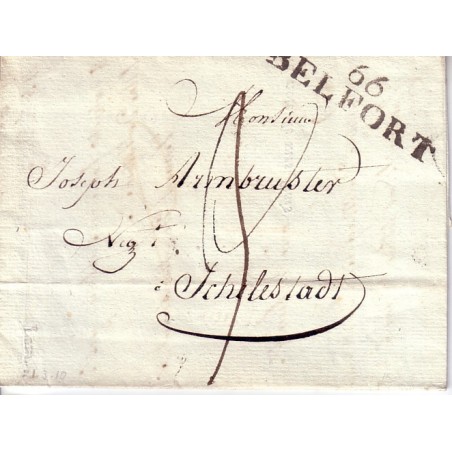 66
BELFORT
Monsieur
Joseph Armbruster
Negt
à Schelestadt